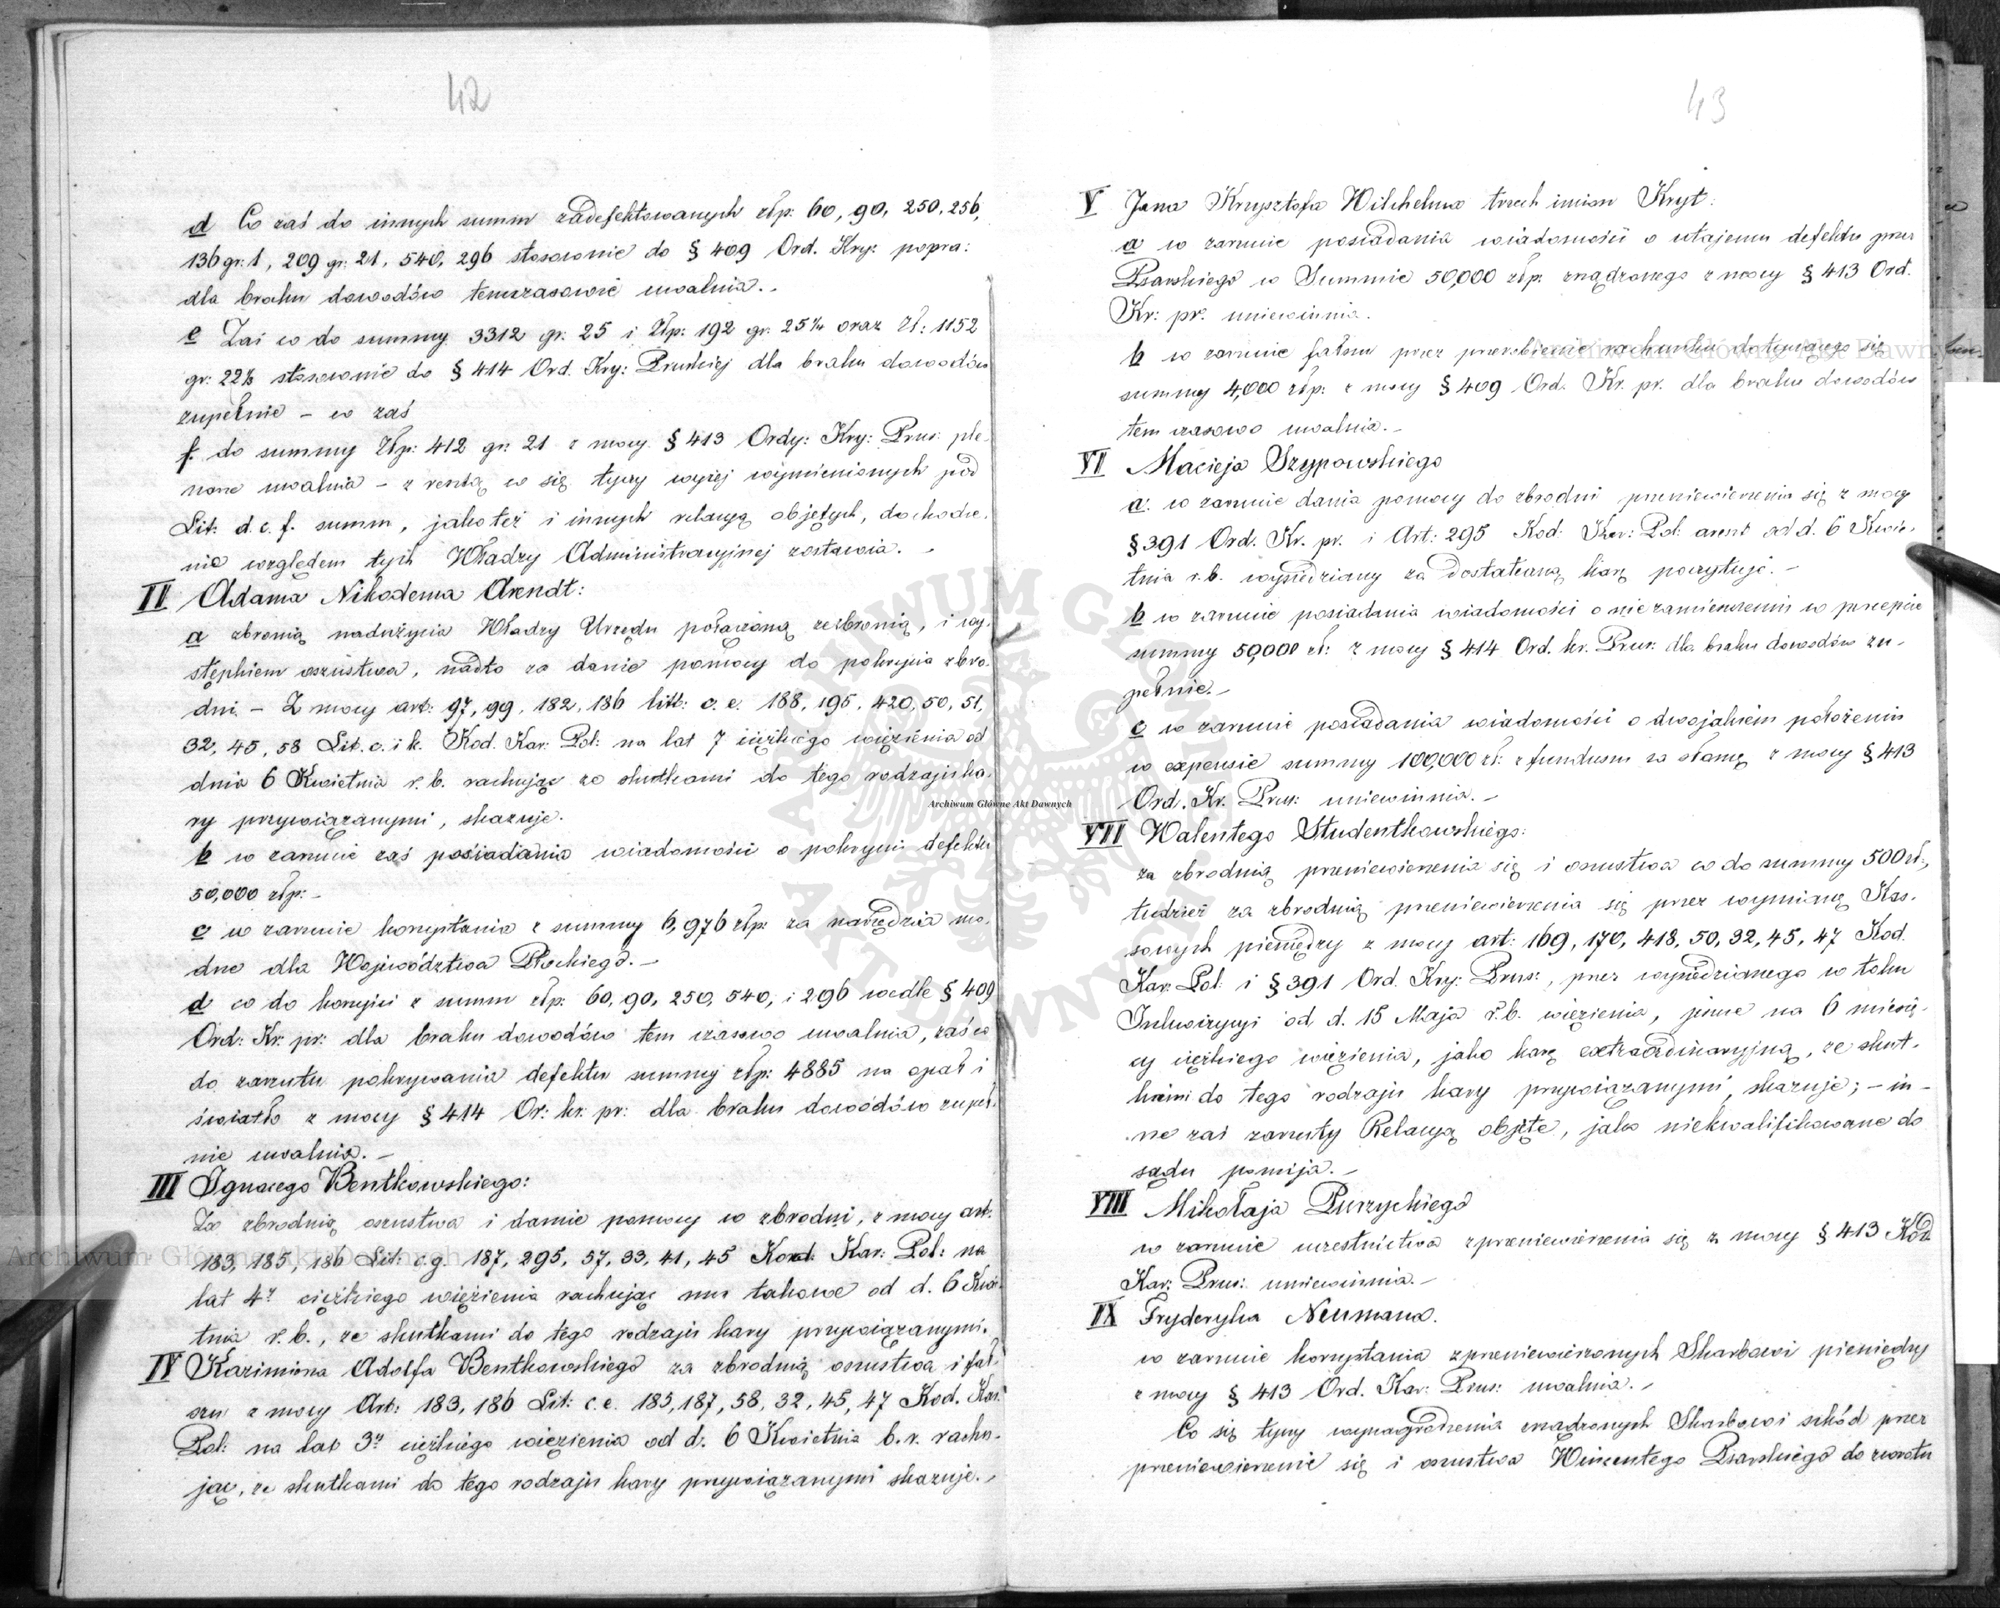 42
d Co zaś do innych summ zadefektowanych złp: 60, 90, 250, 256,
136 gr: 1, 209 gr: 21, 540, 296 stosownie do § 409 Ord. Kry: popra:
dla braku dowodów temczasowie uwalnia. -
e Zaś co do summy 3312 gr: 25 i Złp: 192 gr: 25¼ oraz Zł: 1152
gr: 22⅔ stosownie do § 414 Ord. Kry: Pruskiej dla braku dowodów
zupełnie - co zaś
f. do summy Złp: 412 gr: 21 z mocy § 413 Ordy: Kry: Prus:
uwalnia - z resztą co się tyczy wyżej wymienionych pod
Lit: d. e. f. summ, jako też i innych relacyą objętych, dochodze-
nie względem tych Władzy Administracyjnej zostawia. -
II Adama Nikodema Arendt:
a zbronią nadużycia Władzy Urzędu połączoną ze zbronią, i wy-
stępkiem oszustwa, nadto za danie pomocy do pokrycia zbro-
dni. - Z mocy art: 97, 99, 182, 186 litt: c. e. 188, 195, 420, 50, 51,
32, 45, 58 Lit. c. i k. Kod. Kar: Pol: na lat 7 ciężkiego więzienia od
dnia 6 Kwietnia r. b. rachując ze skutkami do tego rodzaju ka-
ry przywiązanymi, skazuje.
b w zarzucie zaś posiadania wiadomości o pokryciu defektu
50,000 złp: -
c w zarzucie korzystania z summy 6,976 złp: za narzędzia mo-
dne dla Województwa Płockiego. -
d co do korzyści z summ złp: 60, 90, 250, 540, i 296 wedle § 409
Ord: Kr: pr: dla braku dowodów tem czasowo uwalnia, zaś co
do zarzutu pokrywania defektu summy złp: 4885 na opał i
światło z mocy § 414 Or: kr: pr: dla braku dowodów zupeł-
nie uwalnia. -
III Ignacego Bentkowskiego:
Za zbrodnią oszustwa i danie pomocy w zbrodni, z mocy art:
183, 185, 186 Lit: c. g. 187, 295, 57, 33, 41, 45 Kod: Kar: Pol: na
lat 4ʳ ciężkiego więzienia rachując mu takowe od d. 6 Kwie-
tnia r. b., ze skutkami do tego rodzaju kary przywiązanymi.
IV Kazimirza Adolfa Bentkowskiego za zbrodnią oszustwa i fał-
szu z mocy Art: 183, 186 Lit: c. e. 185, 187, 58, 32, 45, 47 Kod. Kar:
Pol: na lat 3ʸ ciężkiego więzienia od d. 6 Kwietnia b. r. rachu-
jąc, ze skutkami do tego rodzaju kary przywiązanymi skazuje. -
43
V Jana Krzysztofa Wilchelma trzech imion Kryt:
a w zarzucie posiadania wiadomości o utajeniu defektu przez
Psarskiego w Summie 50,000 złp: zrządzonego z mocy § 413 Ord.
Kr: pr: uniewinnia.
b w zarzucie fałszu przez przerobienie rachunku dotyczącego się
summy 4,000 złp: z mocy § 409 Ord. Kr. pr. dla braku dowodów
tem czasowo uwalnia. -
VI Macieja Szypowskiego
a. w zarzucie dania pomocy do zbrodni przeniewierzenia się z mocy
§ 391 Ord. Kr. pr. i Art: 295 Kod: Kar: Pol: areszt od d. 6 Kwie-
tnia r. b. wysiedziany za dostateczną karę poczytuje. -
b w zarzucie posiadania wiadomości o niezamieszczeniu w przepisie
summy 50,000 zł: z mocy § 414 Ord. kr. Prus: dla braku dowodów zu-
pełnie. -
c w zarzucie posiadania wiadomości o dwojakiem położeniu
w expensie summy 100,000 zł: z funduszu za słomę z mocy § 413
Ord. Kr. Prus: uniewinnia. -
VII Walentego Studentkowskiego:
za zbrodnią przeniewierzenia się i oszustwa co do summy 500 zł:,
tudzież za zbrodnią przeniewierzenia się przez wymianę Kas-
sowych pieniędzy z mocy art: 169, 170, 418, 50, 32, 45, 47 Kod.
Kar: Pol: i § 391 Ord. Kry: Prus:, prócz wysiedzianego w toku
Inkwizycyi od d. 15 Maja r. b. więzienia, jeszcze na 6 miesię-
cy ciężkiego więzienia, jako karę extraordinaryjną, ze skut-
kami do tego rodzaju kary przywiązanymi, skazuje; - in-
ne zaś zarzuty Relacyą objęte, jako niekwalifikowane do
sądu pomija. -
VIII Mikołaja Purzyckiego
w zarzucie uczestnictwa zprzeniewierzenia się z mocy § 413 Kod.
Kar: Prus: uniewinnia. -
IX Fryderyka Neumana.
w zarzucie korzystania zprzeniewierzonych Skarbowi pieniędzy
z mocy § 413 Ord. Kar: Prus: uwalnia. -
Co się tyczy wynagrodzenia zrządzonych Skarbowi szkód przez
przeniewierzenie się i oszustwa Wincentego Psarskiego do zwrotu
Archiwum Główne Akt Dawnych